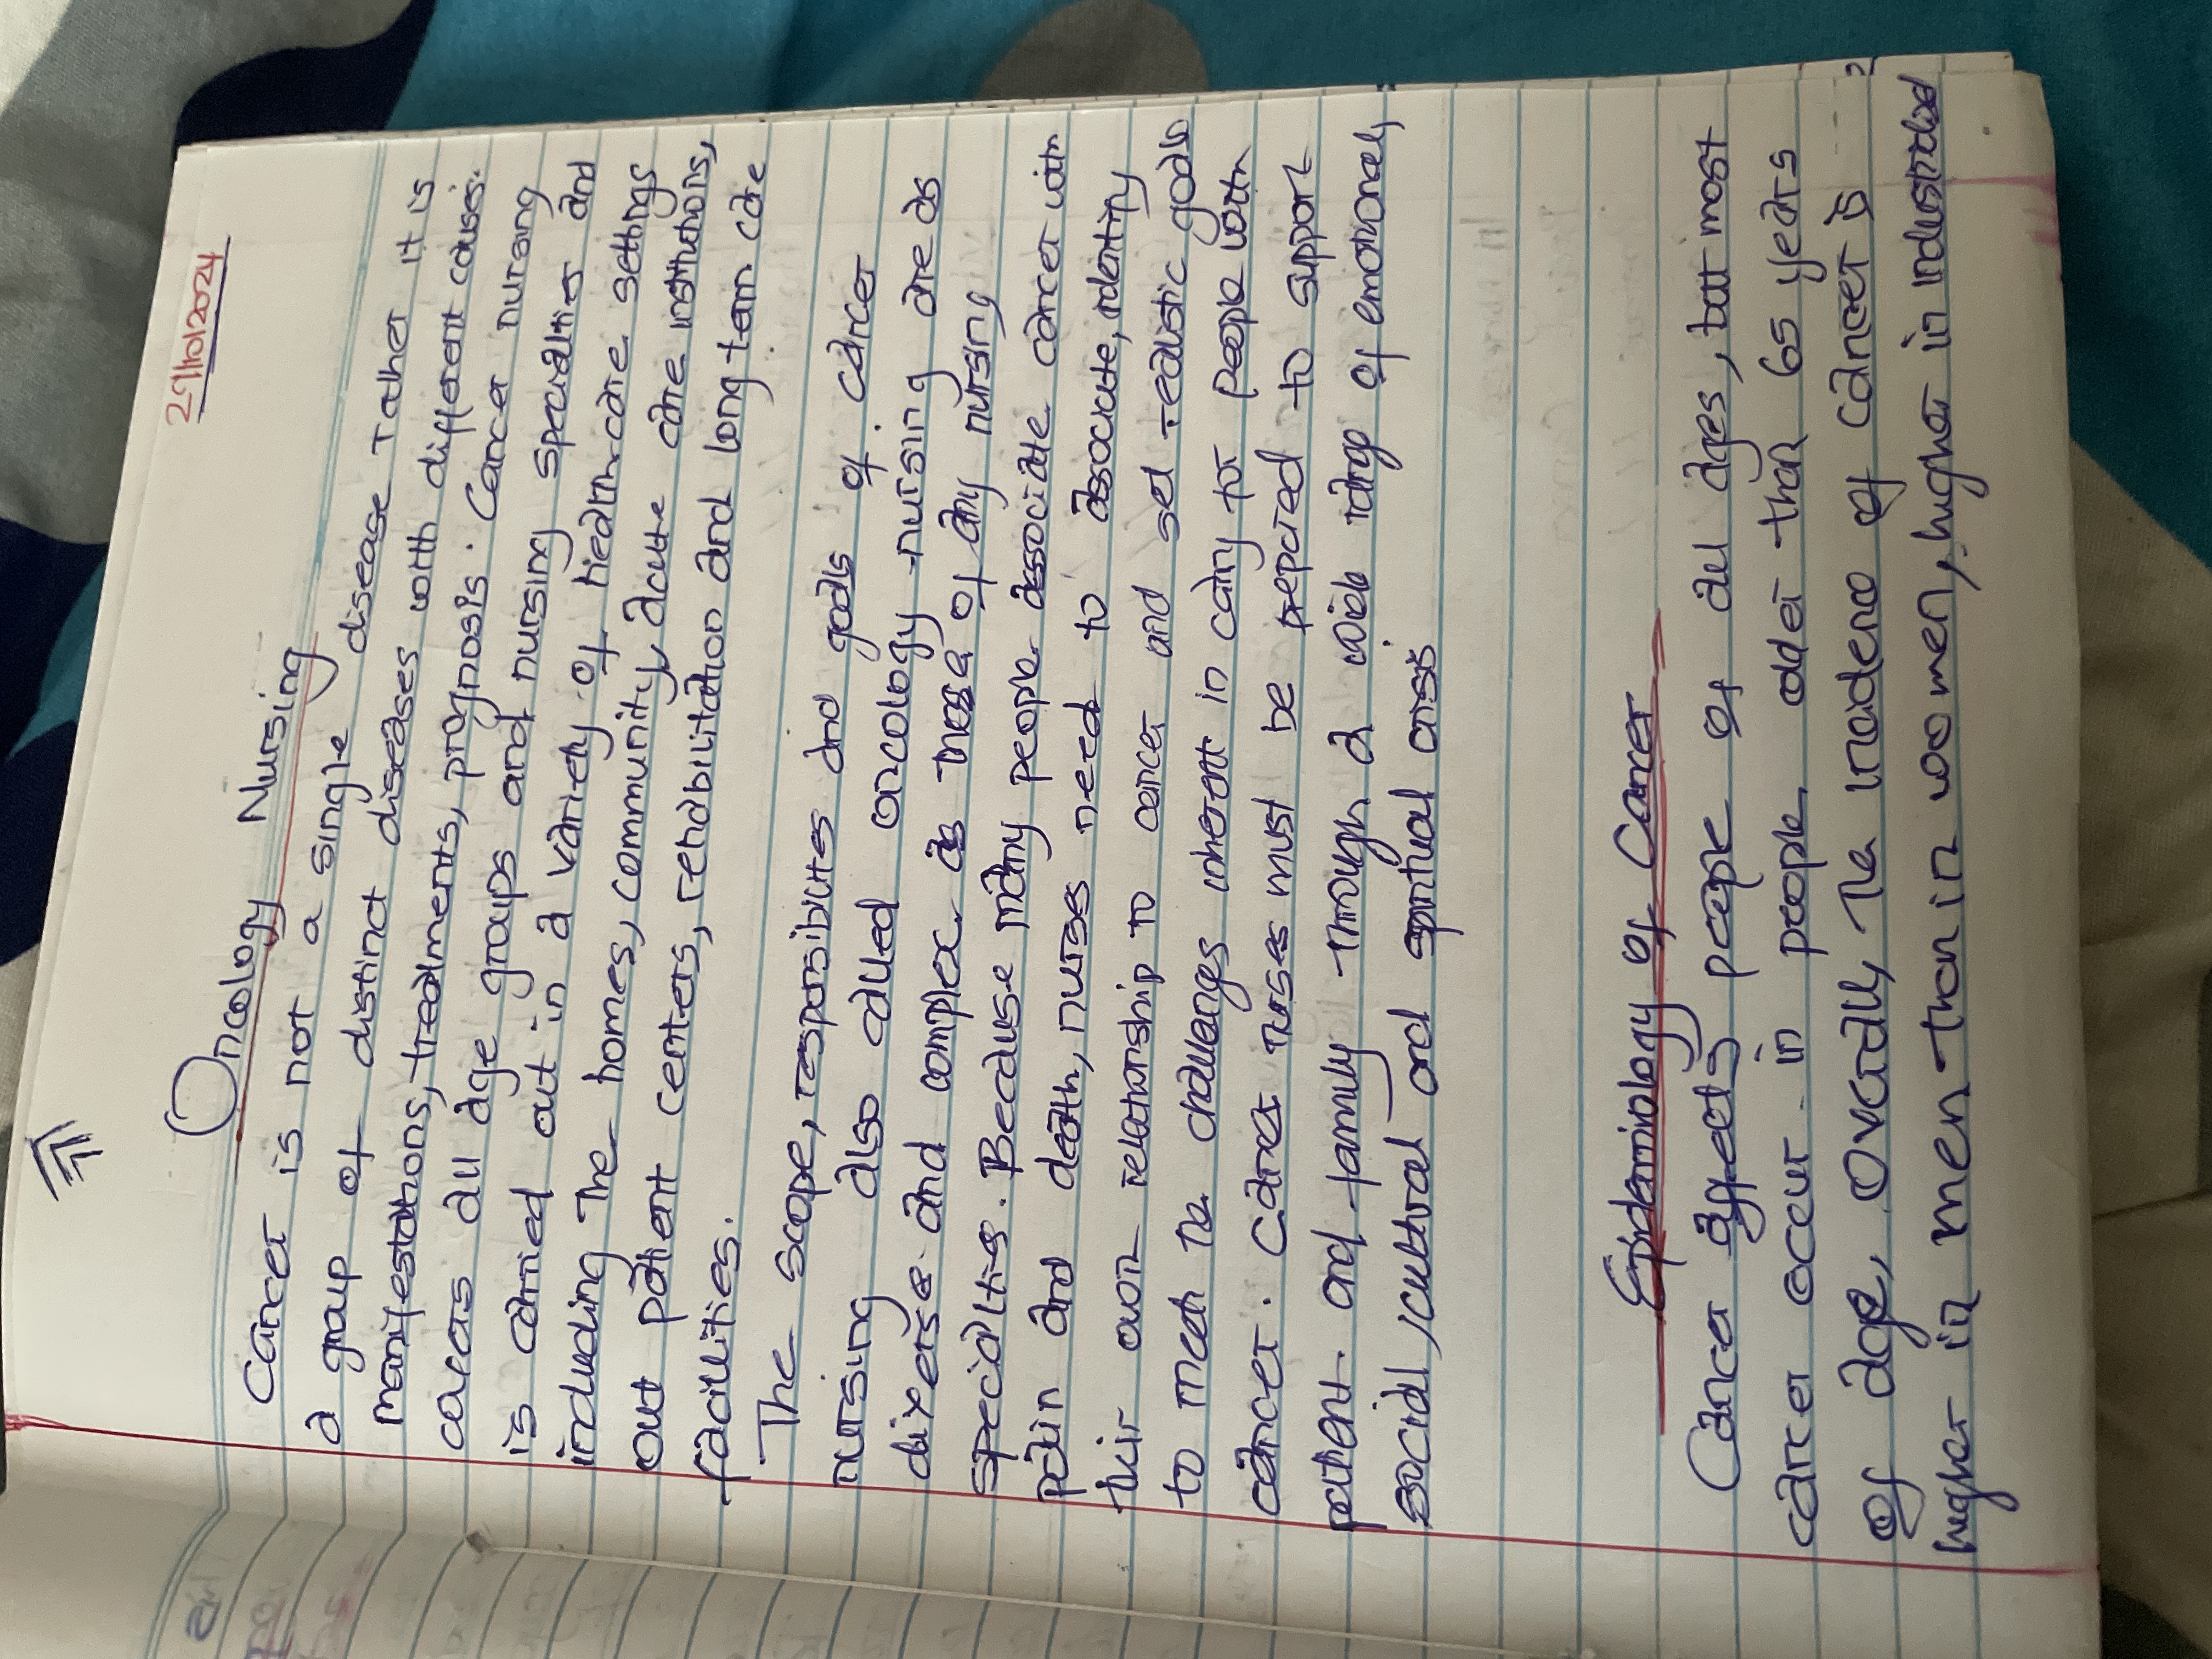 29/10/2024
Oncology Nursing
Cancer is not a single disease rather it is
a group of distinct diseases with different causes.
manifestations, treatments, prognosis. Cancer nursing
covers all age groups and nursing specialties and
is carried out in a variety of healthcare settings
including the homes, community, acute care institutions,
out patient centers, rehabilitation and long term care
facilities.
The scope, responsibilites and goals of cancer
nursing also called oncology nursing are as
diverse and complex as those of any nursing
specialties. Because many people associate cancer with
pain and death, nurses need to associate, identify
their own relationship to cancer and set realistic goals
to meet the challenges inherent in caring for people with
cancer. Cancer nurses must be prepared to support
patient and family through a wide range of emotional,
social, cultural and spiritual crisis
Epidemiology of Cancer
Cancer affects people of all ages, but most
cancer occur in people older than 65 years
of age, Overall, the incidence of cancer is
higher in men than in women, higher in industrialised